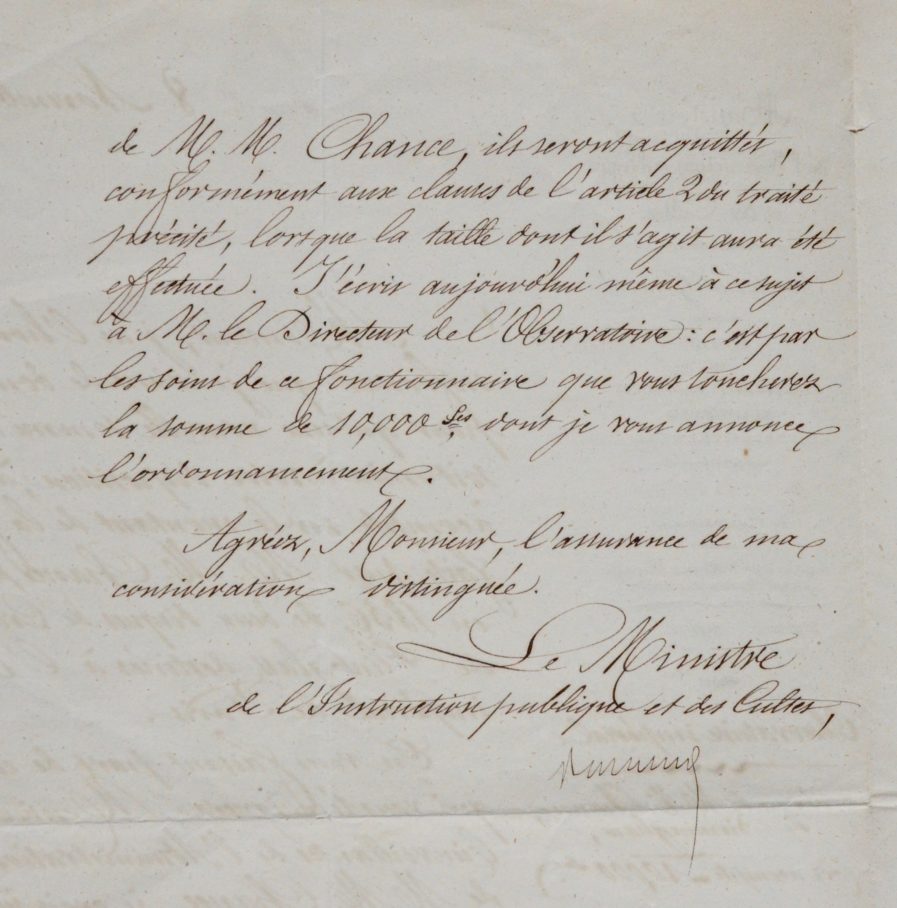 de M. M. Chance, ils seront acquittés,
conformément aux clauses de l'article 2 du traité
précité, lorsque la taille dont il s'agit aura été
effectuée. J'écris aujourd'hui même à ce sujet
à M. le Directeur de l'Observatoire : c'est par
les soins de ce fonctionnaire que vous toucherez
la somme de 10,000 fcs, dont je vous annonce
l'ordonnancement.
Agréez, Monsieur, l'assurance de ma
considération distinguée.
Le Ministre
de l'Instruction publique et des Cultes,